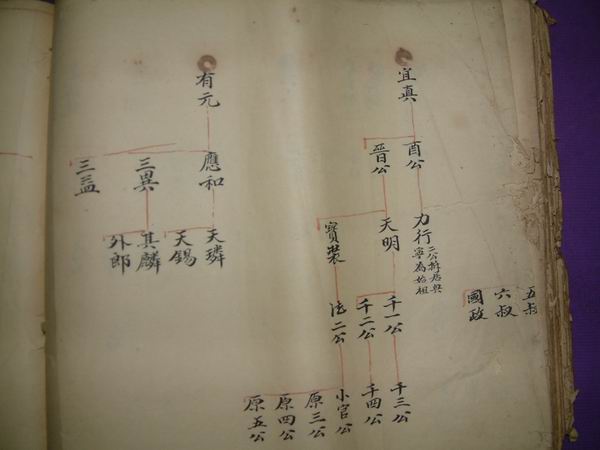 五叔
六叔
國政
宜真
酉公
晉公
力行
二公
始祖
天明
寶裝
千一公
千二公
法二公
千三公
千四公
小官公
原三公
原四公
原五公
有元
應和
三異
三益
天璘
天錫
其麟
外郎